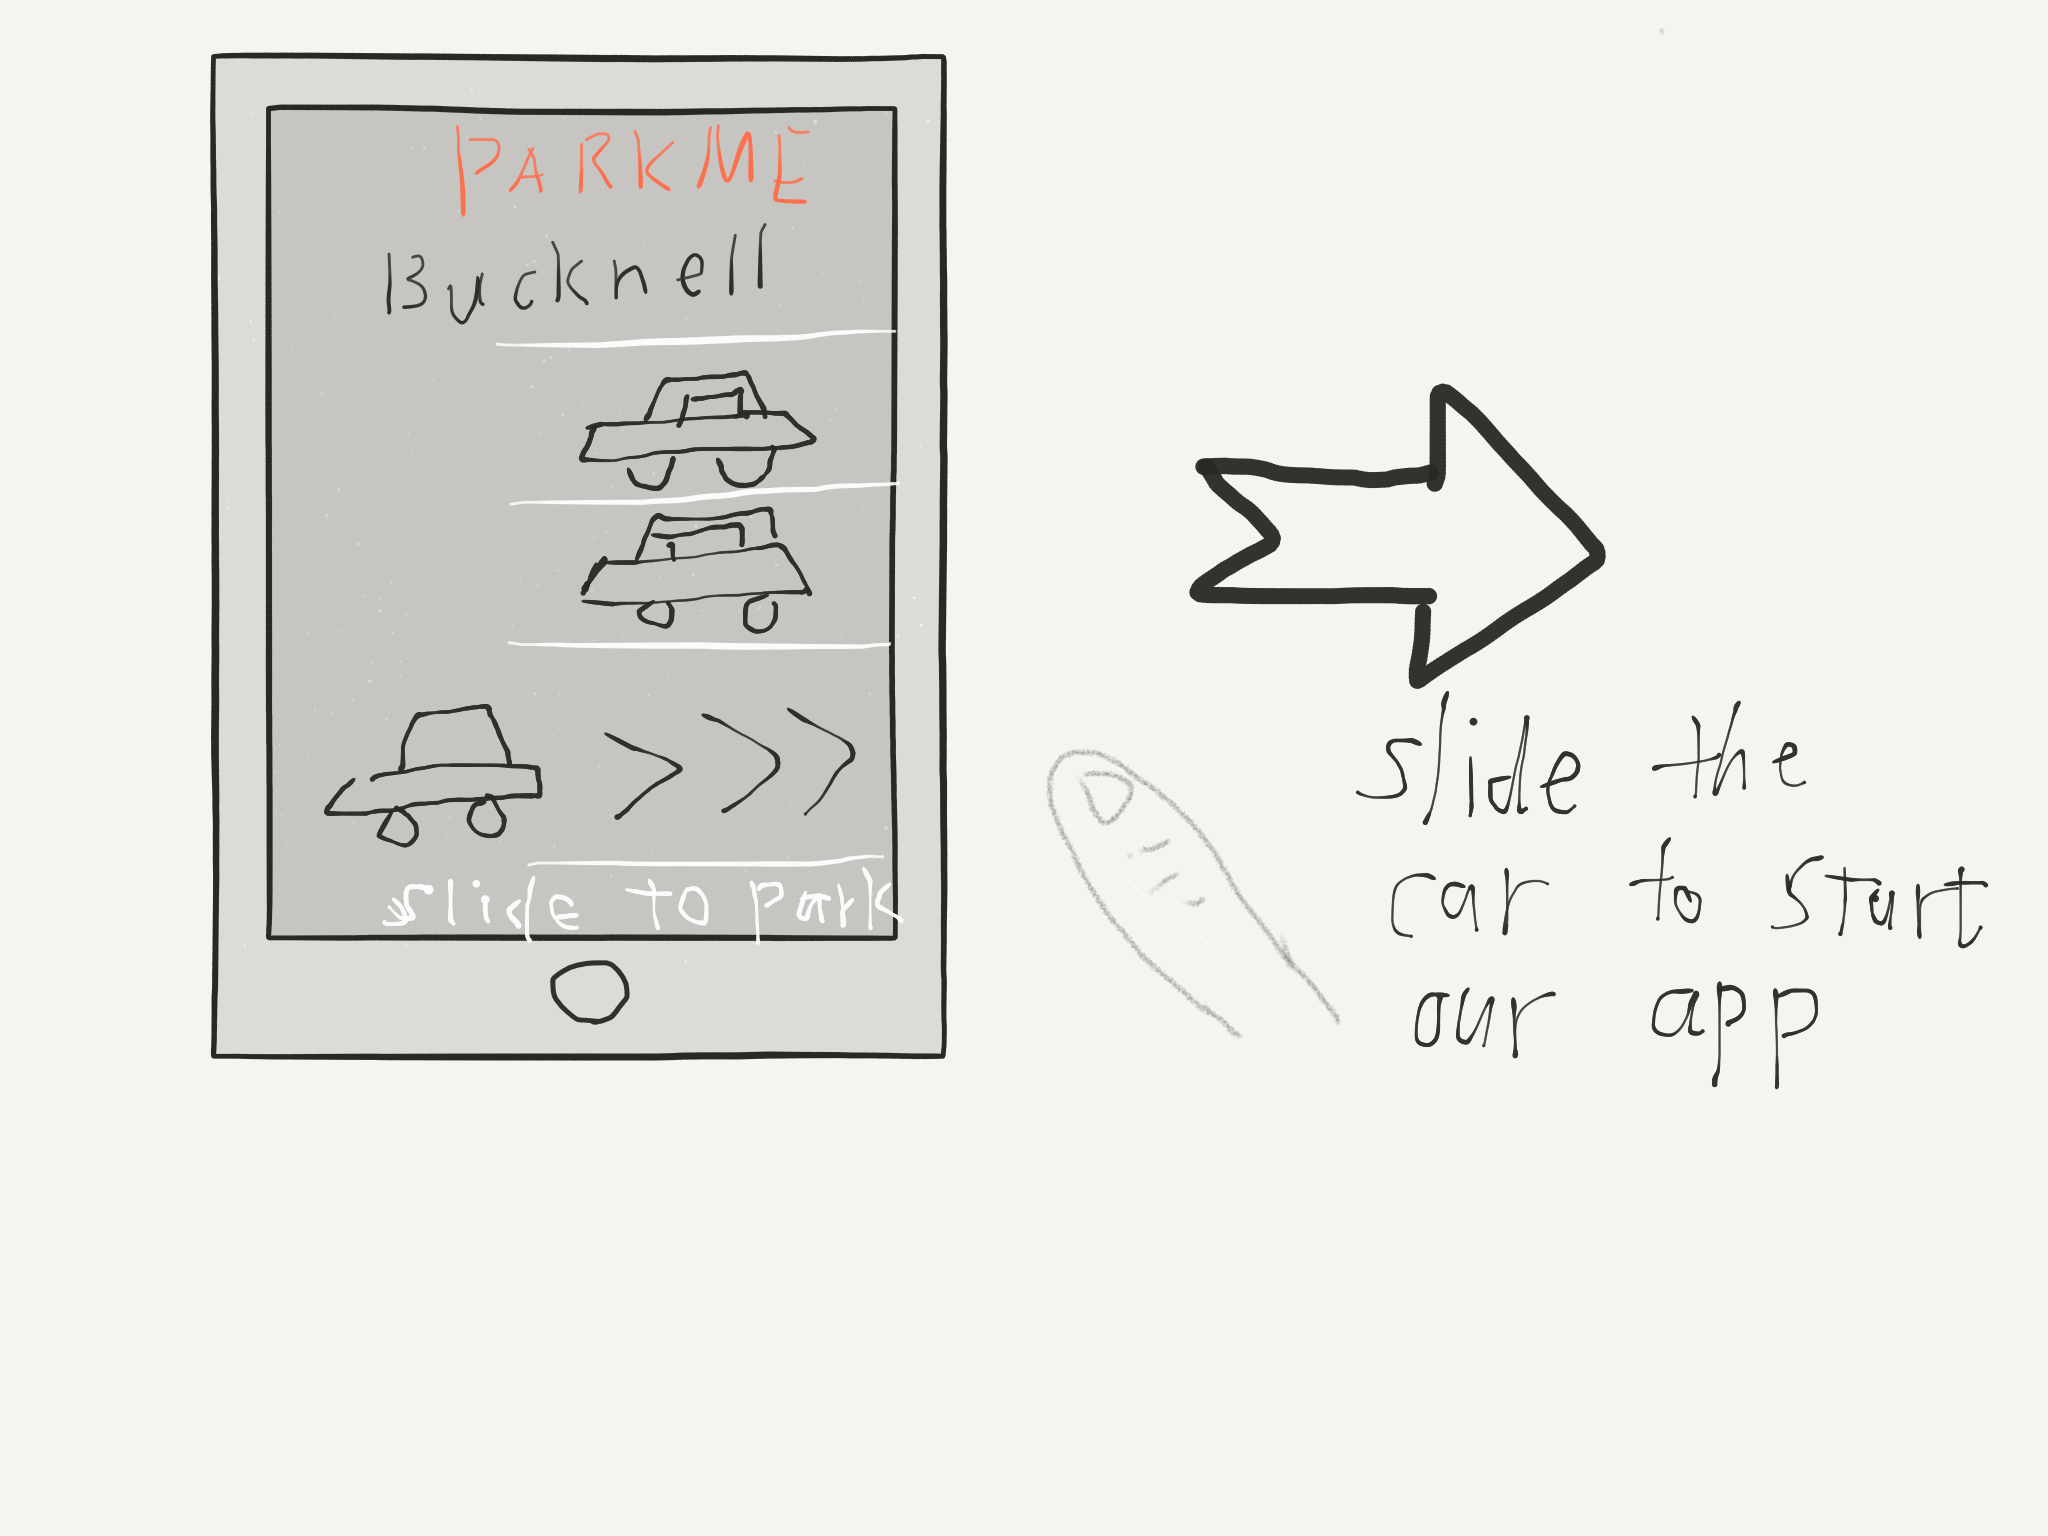 PARKME
Bucknell
slide to park
slide the
car to start
our app